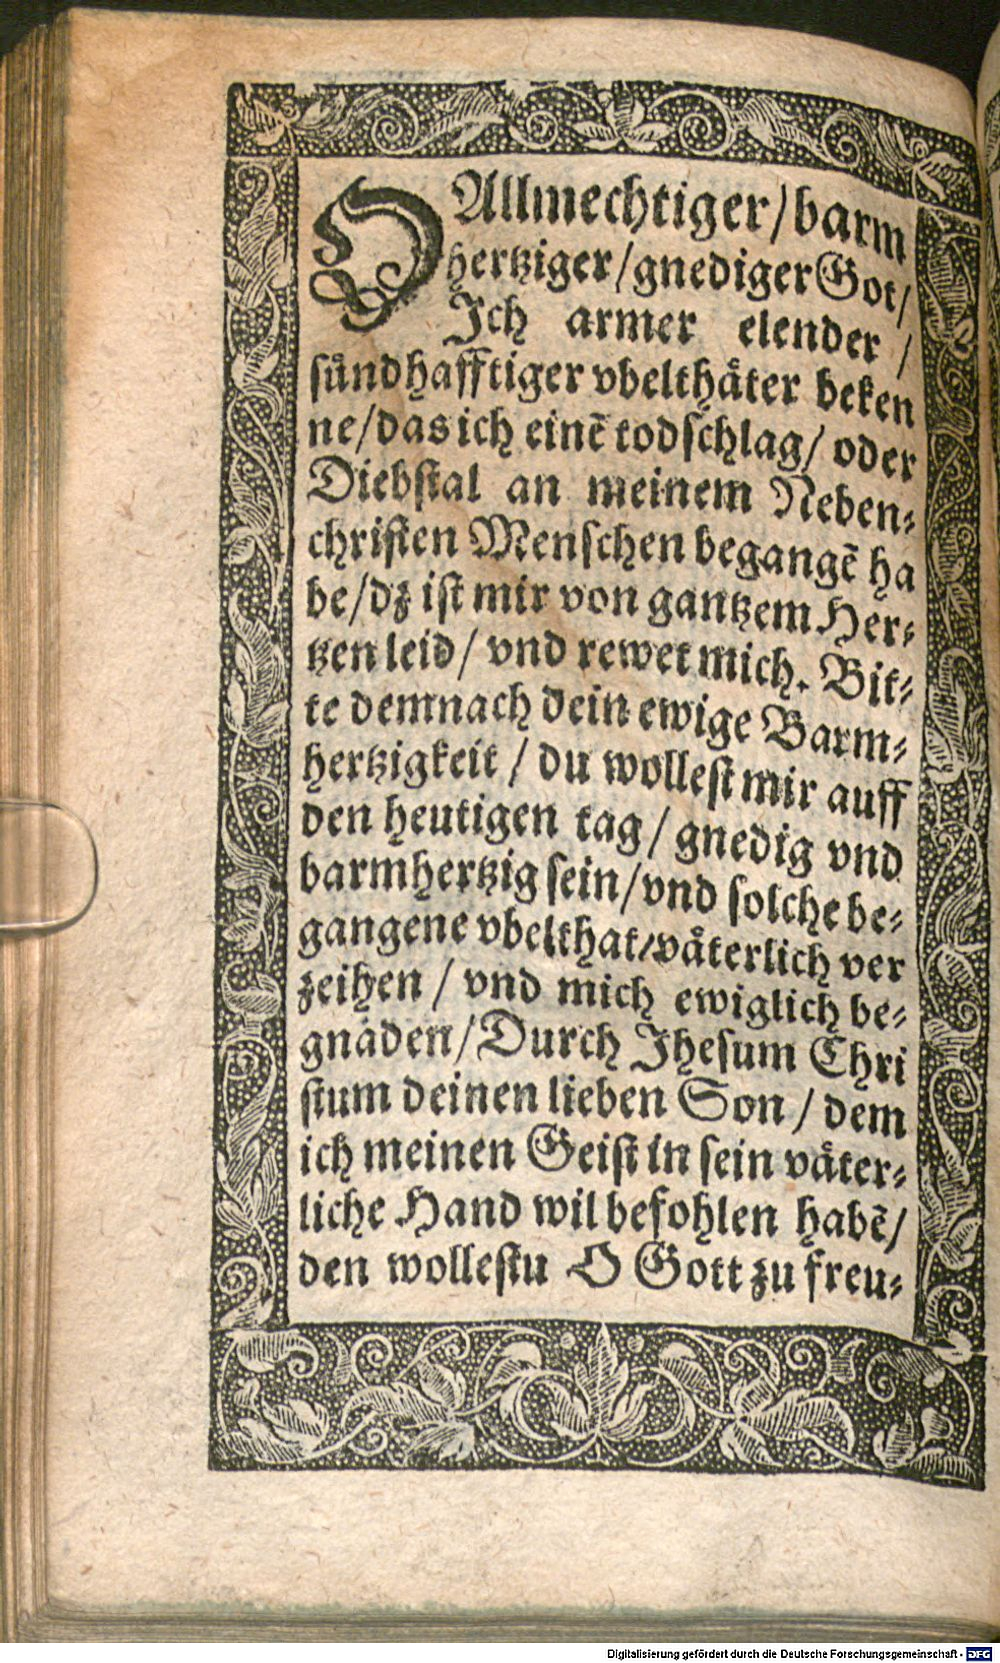 O Allmechtiger/barm
hertziger/gnediger Got/
Ich armer elender /
sůndhafftiger vbelthåter beken
ne/das ich einẽ todschlag/ oder
Diebstal an meinem Neben⸗
christen Menschen begangẽ ha
be/dz ist mir von gantzem Her⸗
tzen leid/ vnd rewet mich. Bit⸗
te demnach dein ewige Barm⸗
hertzigkeit / du wollest mir auff
den heutigen tag/ gnedig vnd
barmhertzig sein/vnd solche be⸗
gangene vbelthat/våterlich ver
zeihen / vnd mich ewiglich be⸗
gnaden/Durch Jhesum Chri
stum deinen lieben Son/ dem
ich meinen Geist in sein våter⸗
liche Hand wil befohlen habẽ/
den wollestu O Gott zu freu⸗
Digitalisierung gefördert durch die Deutsche Forschungsgemeinschaft - DFG